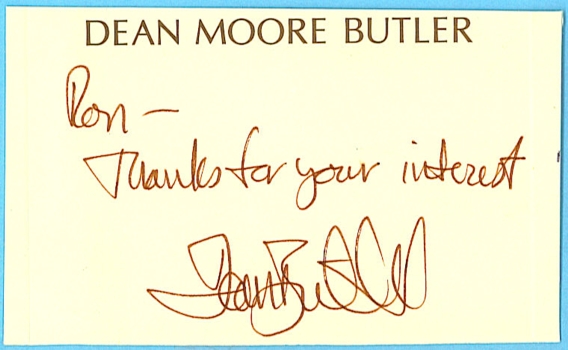 DEAN MOORE BUTLER
Ron —
Thanks for your interest
Dean Butler